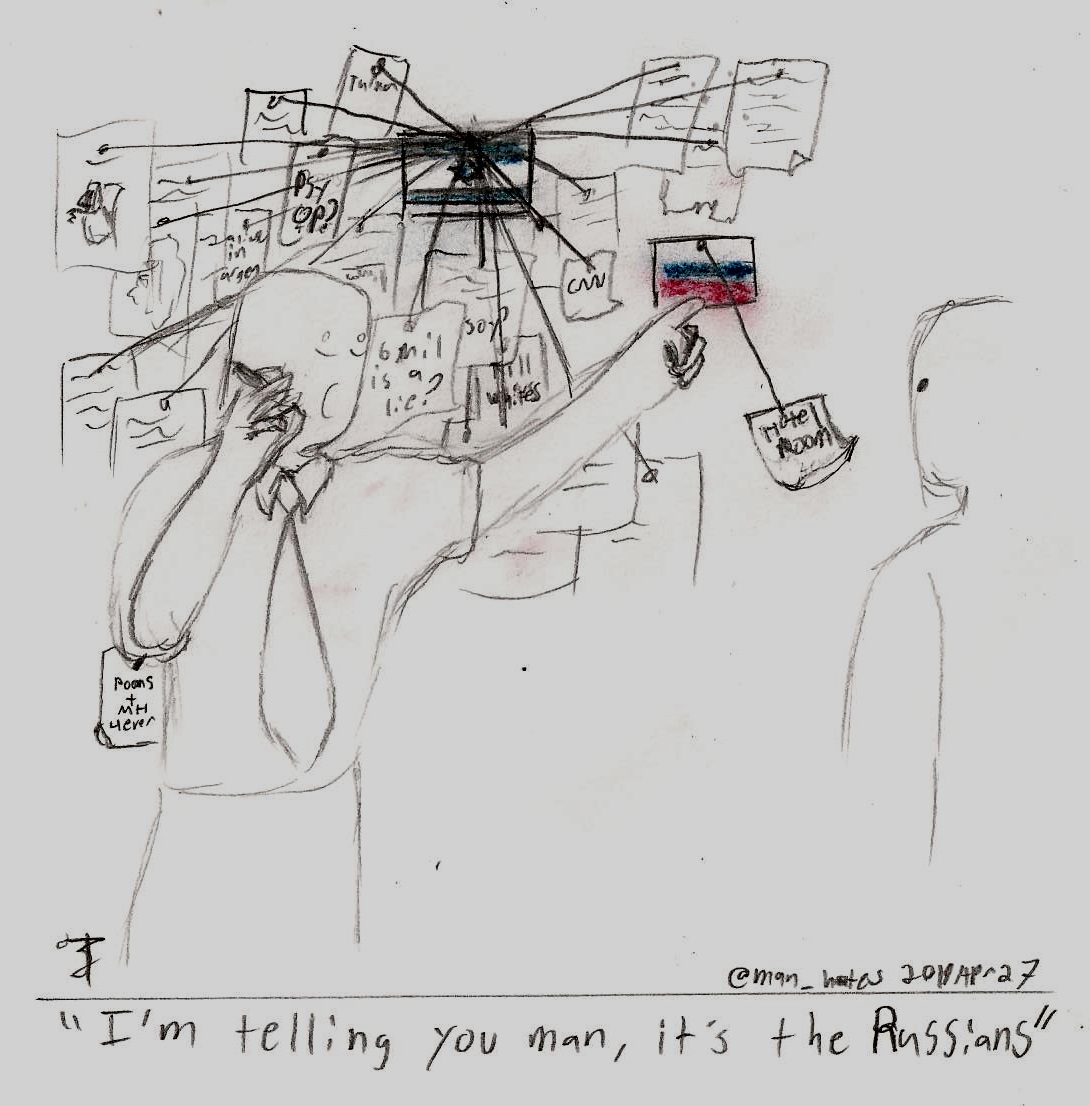 PSY
OP?
alive
in
argen
CNN
6 mil
is a
lie?
soy?
kill
whites
Hotel
Room
Poons
+
MH
4ever
@man_hates 2018 Apr 27
"I'm telling you man, it's the Russians"